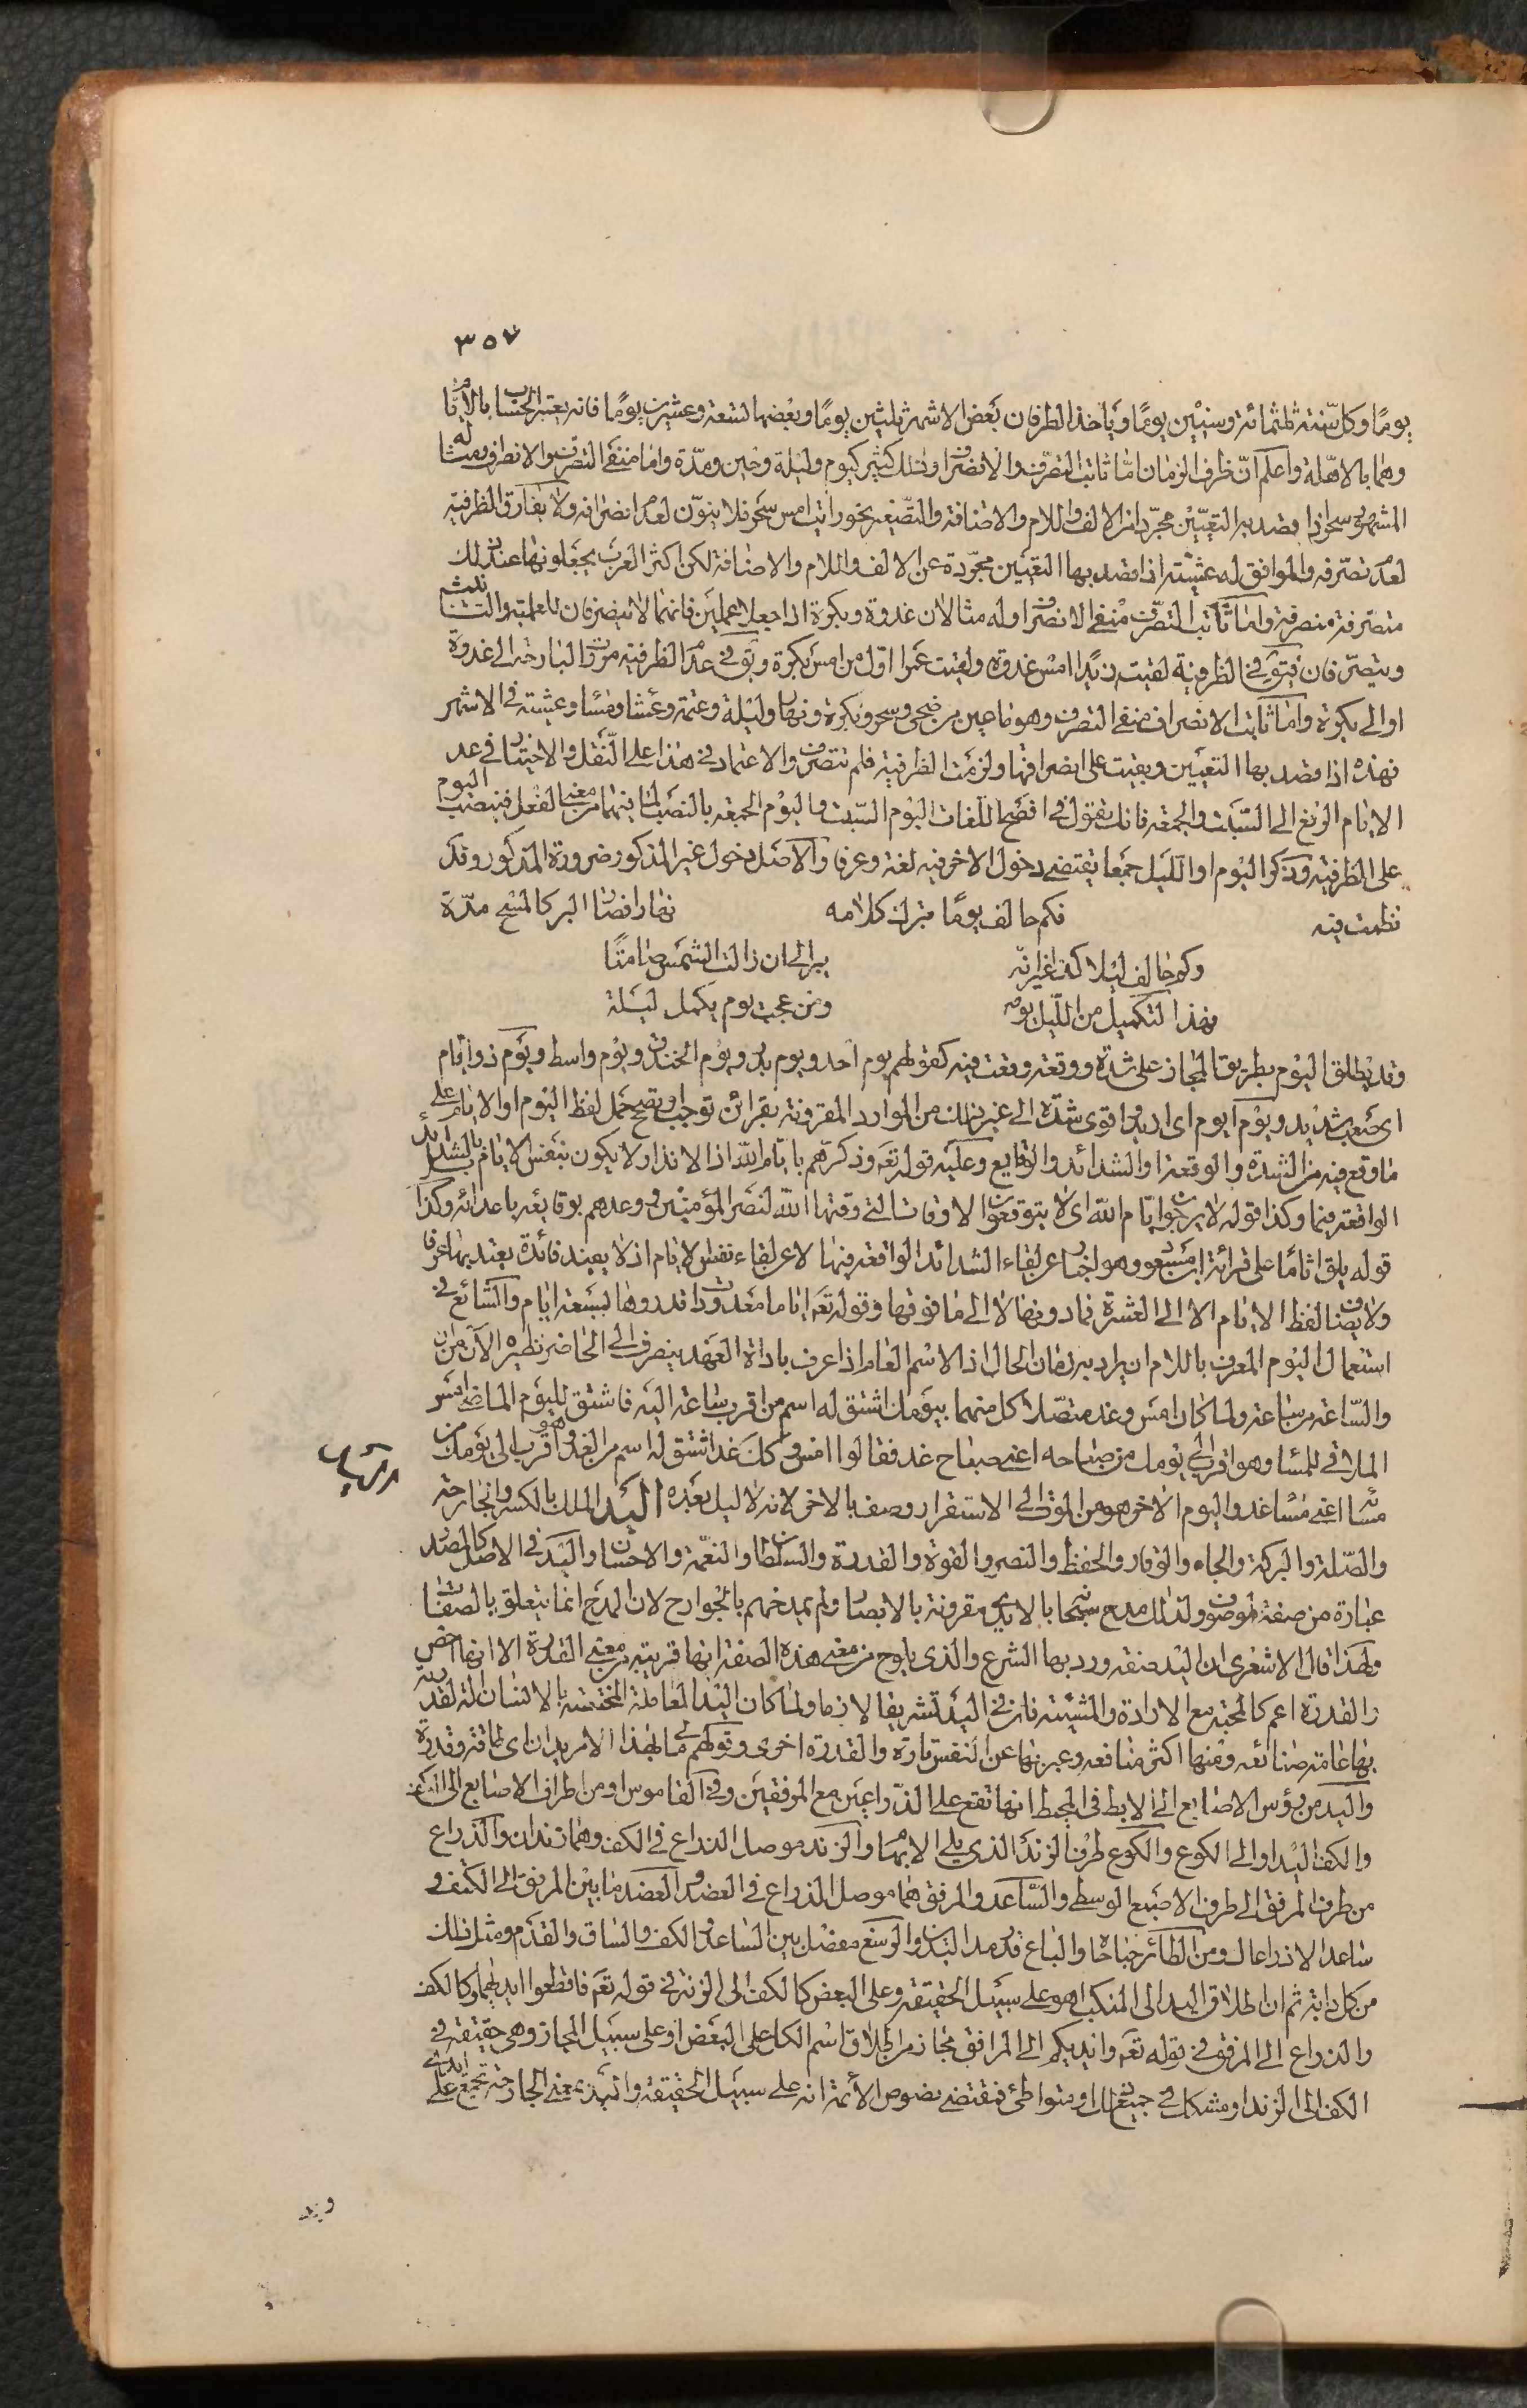 ٣٥٧
يومًا وكل سنة ثلثمائة وستين يومًا ويأخذ الطرفان بعض الاشهر ثلثين يومًا وبعضها لتسعة وعشرين يومًا فانه يعتبر الحساب بالايام
وهما بالاهلة واعلم ان ظرف الزمان اما ثابت التصرف والانصراف وذلك كثير كيوم وليلة وحين ومدة واما منفي التصرف والانصراف ومثاله
المشهور سحر اذا قصد به التعيين مجردا من الالف واللام والاضافة والتصغير نحو رايت امس سحر فلا ينون لعدم انصرافه ولا يفارق الظرفية
لعدم تصرفه والموافق له عشية اذا قصد بها التعيين مجردة عن الالف واللام والاضافة لكن اكثر العرب يجعلونها عند ذلك
متصرفة منصرفة واما ثابت التصرف منفي الانصراف وله مثالان غدوة وبكرة اذا جعلا علمين فانهما لا ينصرفان للعلمية والتانيث
ويتصرفان فتقول في الظرفية لقيت زيدا امس غدوة ولقيت عمرا اول من امس بكرة وتقول في عدم الظرفية مررت البارحة الى غدوة
او الى بكرة واما ثابت الانصراف منفي التصرف وهو ما عين من ضحى وسحر وبكرة ونهار وليلة وعتمة وعشاء ومساء وعشية في الاشهر
فهذه اذا قصد بها التعيين وبقيت على انصرافها ولزمت الظرفية فلم تتصرف والاعتماد في هذا على النقل والاختيار في عد
الايام الرفع الى السبت والجمعة فانك تقول في افصح اللغات اليوم السبت واليوم الجمعة بالنصب لما فيهما من معنى الفعل فينصب اليوم
على الظرفية وذكر اليوم او الليل جمعا يقتضي دخول الاخر فيه لغة وعرفا والاصل دخول غير المذكور ضرورة المذكور وقد
نظمت فيه فكم حالف يومًا بترك كلامه نهارا فصار البر كالمسح مدة
وكم حالف ليلا كف غير انه يبر الى ان زالت الشمس ضامنًا
فهذا لتكميل من الليل يومه ومن عجب يوم يكمل ليلة
وقد يطلق اليوم بطريق المجاز على شدة ووقعة وقعت فيه كقولهم يوم احد ويوم بدر ويوم الخندق ويوم واسط ويوم ذو ايام
اي صعب شديد ويوم ايوم اي اريد اقوى شدة الى غير ذلك من الموارد المقرونة بقرائن توجب او تصحح حمل لفظ اليوم او الايام على
ما وقع فيه من الشدة والوقعة او الشدائد والوقايع وعليه قوله تعه وذكرهم بايام الله اذ الانذار لا يكون بنفس الايام بل بالشدايد
الواقعة فيها وكذا قوله لا يرجون ايام الله اي لا يتوقعون الاوقات التي وقتها الله لنصر المؤمنين ووعدهم بوقايعه باعدائه وكذا
قوله يلق اثامًا على قرائة ابن مسعود وهو اخبار عن لقاء الشدائد الواقعة فيها لا عن لقاء نفس الايام اذ لا يفيد فائدة يعتد بها عرفا
ولا يضاف لفظ الايام الا الى العشرة فما دونها لا الى ما فوقها وقوله تعه اياما معدودات قدروها بسبعة ايام والشائع في
استعمال اليوم المعرف باللام ان يراد به زمان الحال اذ الاسم العام اذا عرف باداة العهد ينصرف الى الحاضر نظيره الآن من ان
والساعة من ساعة ولما كان امس وغد متصلا كل منهما بيومك اشتق له اسم من اقرب ساعة اليه فاشتق لليوم الماضي امس
الملاقي للمساء وهو اقرب الى يومك من صباحه اعني صباح غد فقالوا امس وكذلك غد اشتق له اسم من الغدو وهو اقرب الى يومك من
مسائه اعني مساء غد واليوم الاخر هو من الموت الى الاستقرار وصف بالاخر لانه لا ليل بعده اليد الملك بالكسر والجارحة
والصلة والبركة والجاه والوقار والحفظ والنصر والقوة والقدرة والسلطان والنعمة والاحسان واليد في الاصل كالمصدر
عبارة من صفة لموصوف ولذلك مدح سبحانه بالايدي مقرونة بالابصار ولم يمدحهم بالجوارح لان المدح انما يتعلق بالصفات
ولهذا قال الاشعرى ان اليد صفة ورد بها الشرع والذى يلوح من معنى هذه الصفة انها قريبة من معنى القدرة الا انها اخص
والقدرة اعم كالمحبة مع الارادة والمشيئة فان في اليد تشريفا لازما ولما كان اليد العاملة المختصة بالانسان آلة لقدرته
بها عامة صنائعه ومنها اكثر منافعه وعبر بها عن النفس تارة والقدرة اخرى وقولهم مالي بهذا الامر يدان اى طاقة وقدرة
واليد من رؤس الاصابع الى الابط في المحيط انها تقع على الذراعين مع المرفقين وفي القاموس او من اطراف الاصابع الى الكتف
والكف اليد او الى الكوع والكوع طرف الزند الذي يلي الابهام والزند موصل الذراع في الكف وهما زندان والذراع
من طرف المرفق الى طرف الاصبع الوسطى والساعد والمرفق هما موصل الذراع في العضد والعضد ما بين المرفق الى الكتف و
ساعدا الا ذراعاك ومن الطائر جناحاه والباع قدر مد اليدين والرسغ مفصل بين الساعد والكف والساق والقدم ومثل ذلك
من كل دابة ثم ان اطلاق اليد الى المنكب هو على سبيل الحقيقة وعلى البعض كالكف الى الزند في قوله تعه فاقطعوا ايديهما وكالكف
والذراع الى المرفق في قوله تعه وايديكم الى المرافق مجاز من اطلاق اسم الكل على البعض او على سبيل المجاز وهي حقيقة في
الكف الى الزند او مشكك في جميع ذلك او متواطئ فنقتضي نصوص الائمة انه على سبيل الحقيقة واليد بمعنى الجارحة تجمع على ايدي